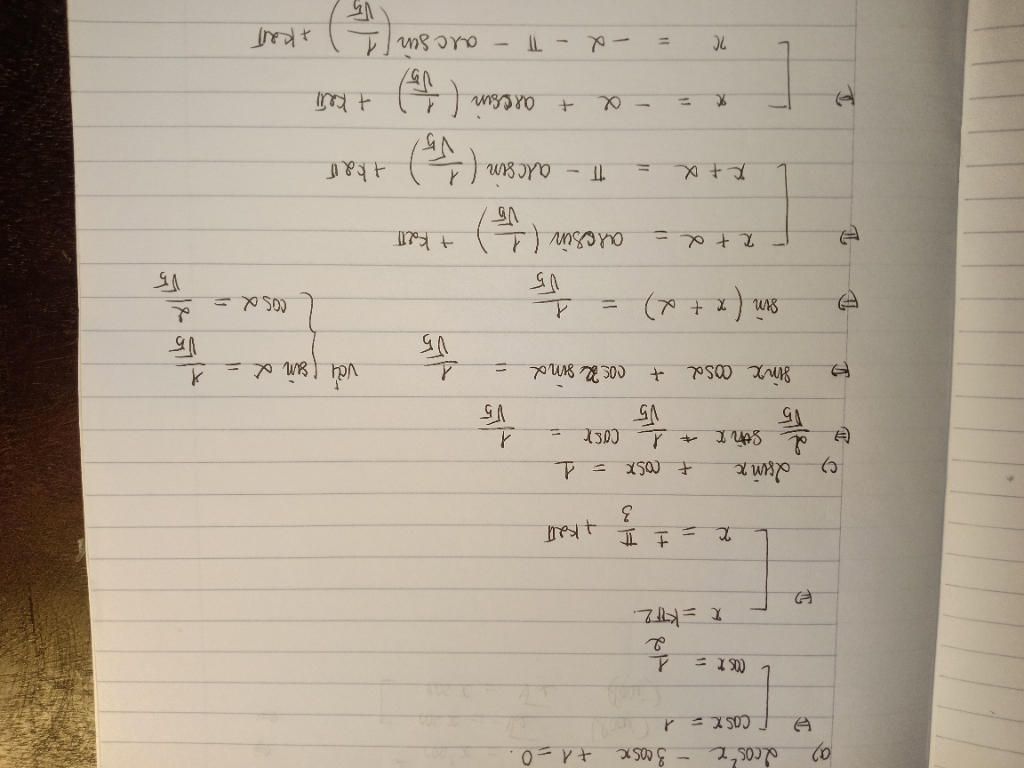 a) 2cos²x - 3cosx + 1 = 0.
⇔ [ cosx = 1
cosx = 1/2
⇔ [ x = kπ2.
x = ± π/3 + k2π
c) 2sinx + cosx = 1
⇔ 2/√5 sinx + 1/√5 cosx = 1/√5
⇔ sinx cosα + cosx sinα = 1/√5 với { sinα = 1/√5
cosα = 2/√5
⇔ sin(x + α) = 1/√5
⇔ [ x + α = arcsin(1/√5) + k2π
x + α = π - arcsin(1/√5) + k2π
⇔ [ x = -α + arcsin(1/√5) + k2π
x = -α - π - arcsin(1/√5) + k2π